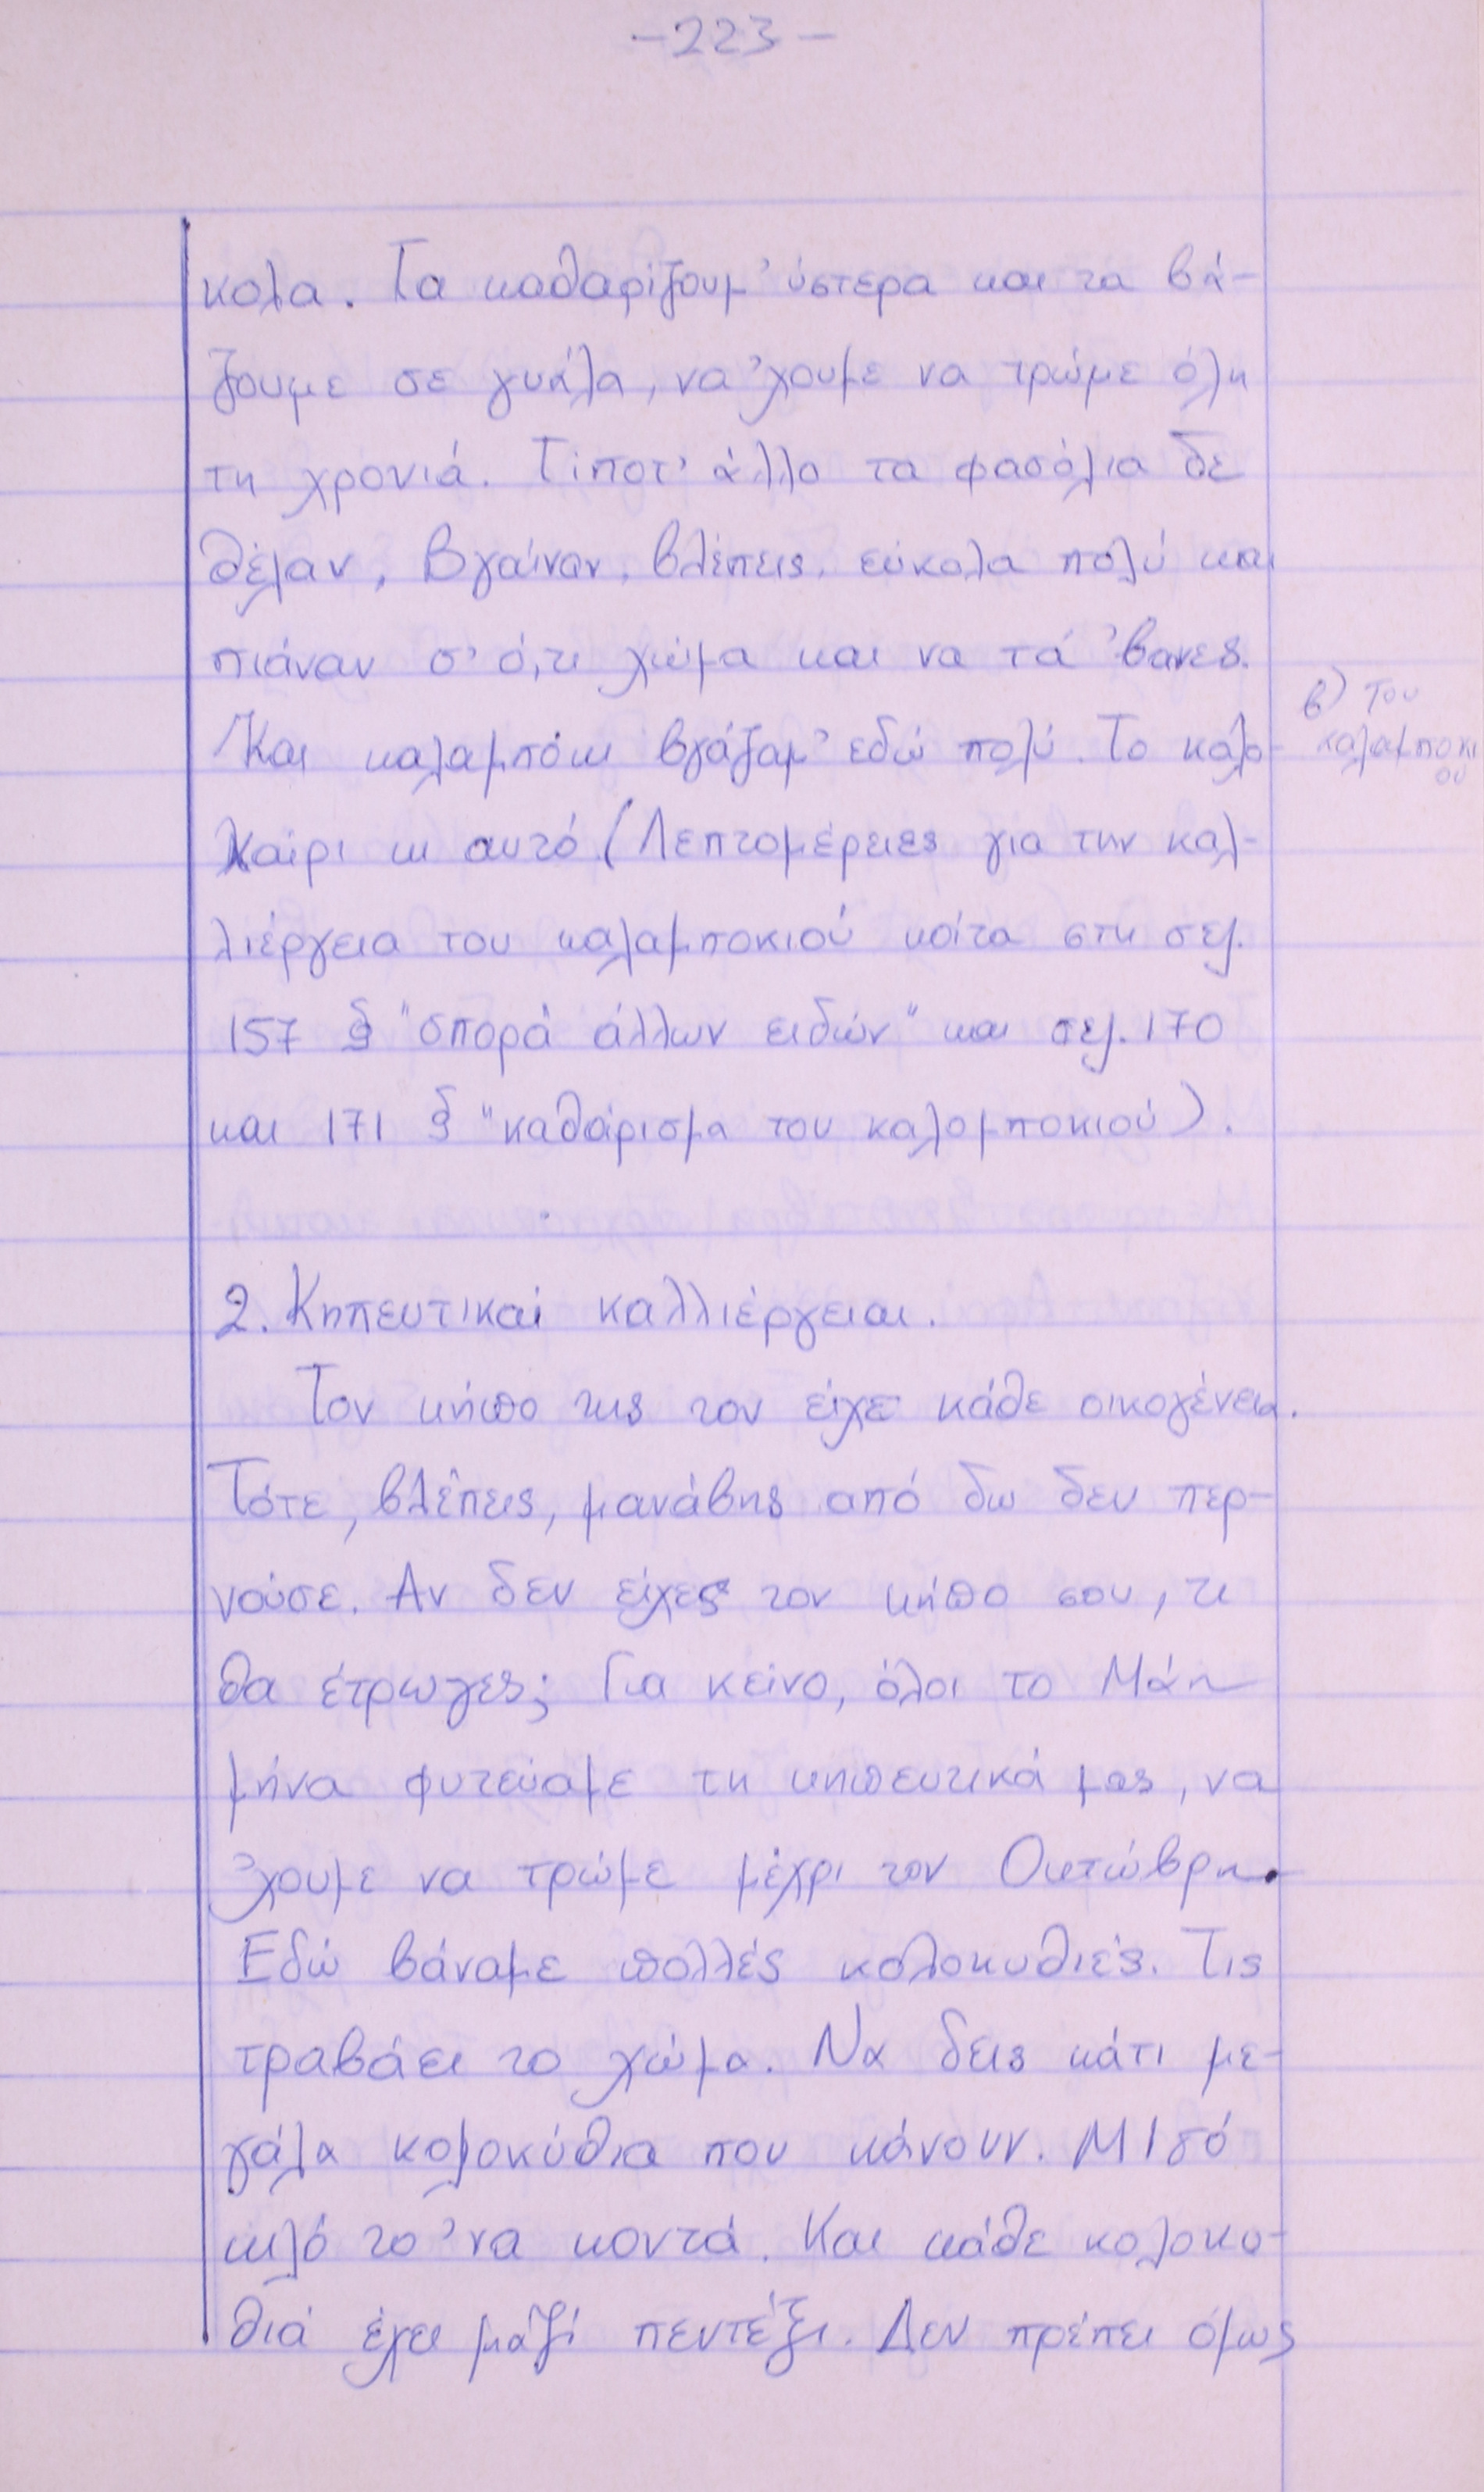 -223-
κολα. Τα καθαρίζουμ' ύστερα και τα βά-
ζουμε σε γυάλα, να 'χουμε να τρώμε όλη
τη χρονιά. Τίποτ' άλλο τα φασόλια δε
θέλαν, Βγαίναν, βλέπεις, εύκολα πολύ και
πιάναν σ' ό,τι χώμα και να τά 'βανες.
Και καλαμπόκι βγάζαμ' εδώ πολύ. Το καλο-
καίρι κι αυτό. (Λεπτομέρειες για την καλ-
λιέργεια του καλαμποκιού κοίτα στη σελ.
157 § "σπορά άλλων ειδών" και σελ. 170
και 171 § "καθάρισμα του καλαμποκιού).
β) του
καλαμποκι
ού
2. Κηπευτικαί καλλιέργειαι.
Τον κήπο της τον είχε κάθε οικογένεια.
Τότε, βλέπεις, μανάβης από δω δεν περ-
νούσε. Αν δεν είχες τον κήπο σου, τι
θα έτρωγες; Για κείνο, όλοι το Μάη
μήνα φυτεύαμε τη κηπευτικά μας, να
'χουμε να τρώμε μέχρι τον Οκτώβρη.
Εδώ βάναμε πολλές κολοκυθιές. Τις
τραβάει το χώμα. Να δεις κάτι με-
γάλα κολοκύθια που κάνουν. Μισό
κιλό το 'να κοντά. Και κάθε κολοκυ-
θιά έχει μαζί πεντέξι. Δεν πρέπει όμως